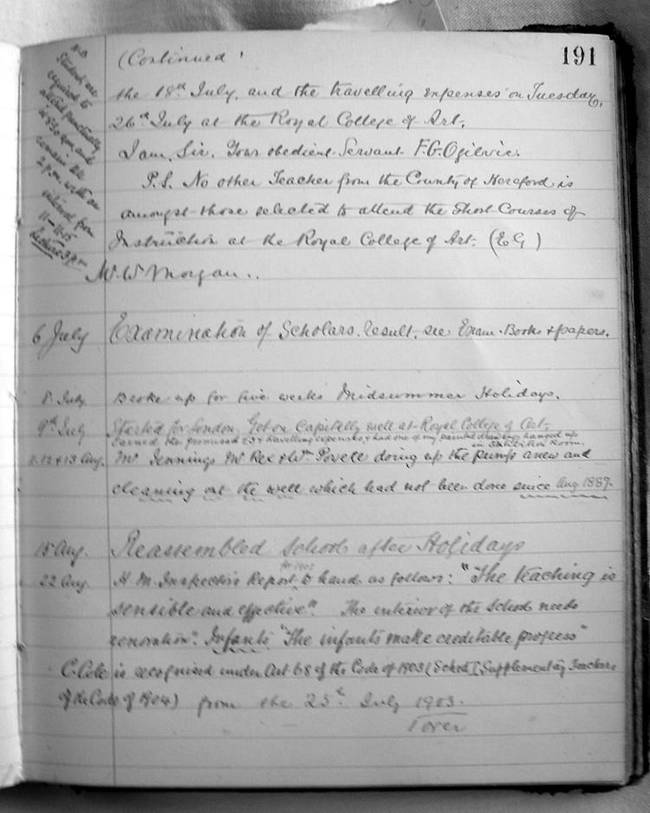 191
(Continued)
the 18th July, and the travelling expenses on Tuesday,
26th July at the Royal College of Art.
I am, Sir, Your obedient Servant F. G. Ogilvie.
P.S. No other Teacher from the County of Hereford is
amongst those selected to attend the Short Courses of
Instruction at the Royal College of Art. (EG)
W. W. Morgan..
N.B
Students are
required to
attend punctually
at 9.30 am and
remain till
with an
interval from
11-45
6 July Examination of Scholars. Result, see Exam. Books & papers.
8 July Broke up for five weeks Midsummer Holidays.
9th July Started for London. Got on Capitally well at Royal College of Art.
Earned the promised & travelling expenses, & had one of my painted drawings hanged up
in Exhibition Room.
12 & 13 Aug. Mr Jennings Mr Rex & Wm Povell doing up the pump anew and
cleaning out the well which had not been done since Aug 1889.
15 Aug. Reassembled School after Holidays
22 Aug. H. M. Inspector's Report to hand as follows: "The teaching is
sensible and effective". The interior of the School needs
renovation". Infants "The infants make creditable progress"
C. Cole is recognised under Art 68 of the Code of 1903 (Sched I, Supplementary Teachers
of the Code of 1904) from the 25th July 1903.
Over